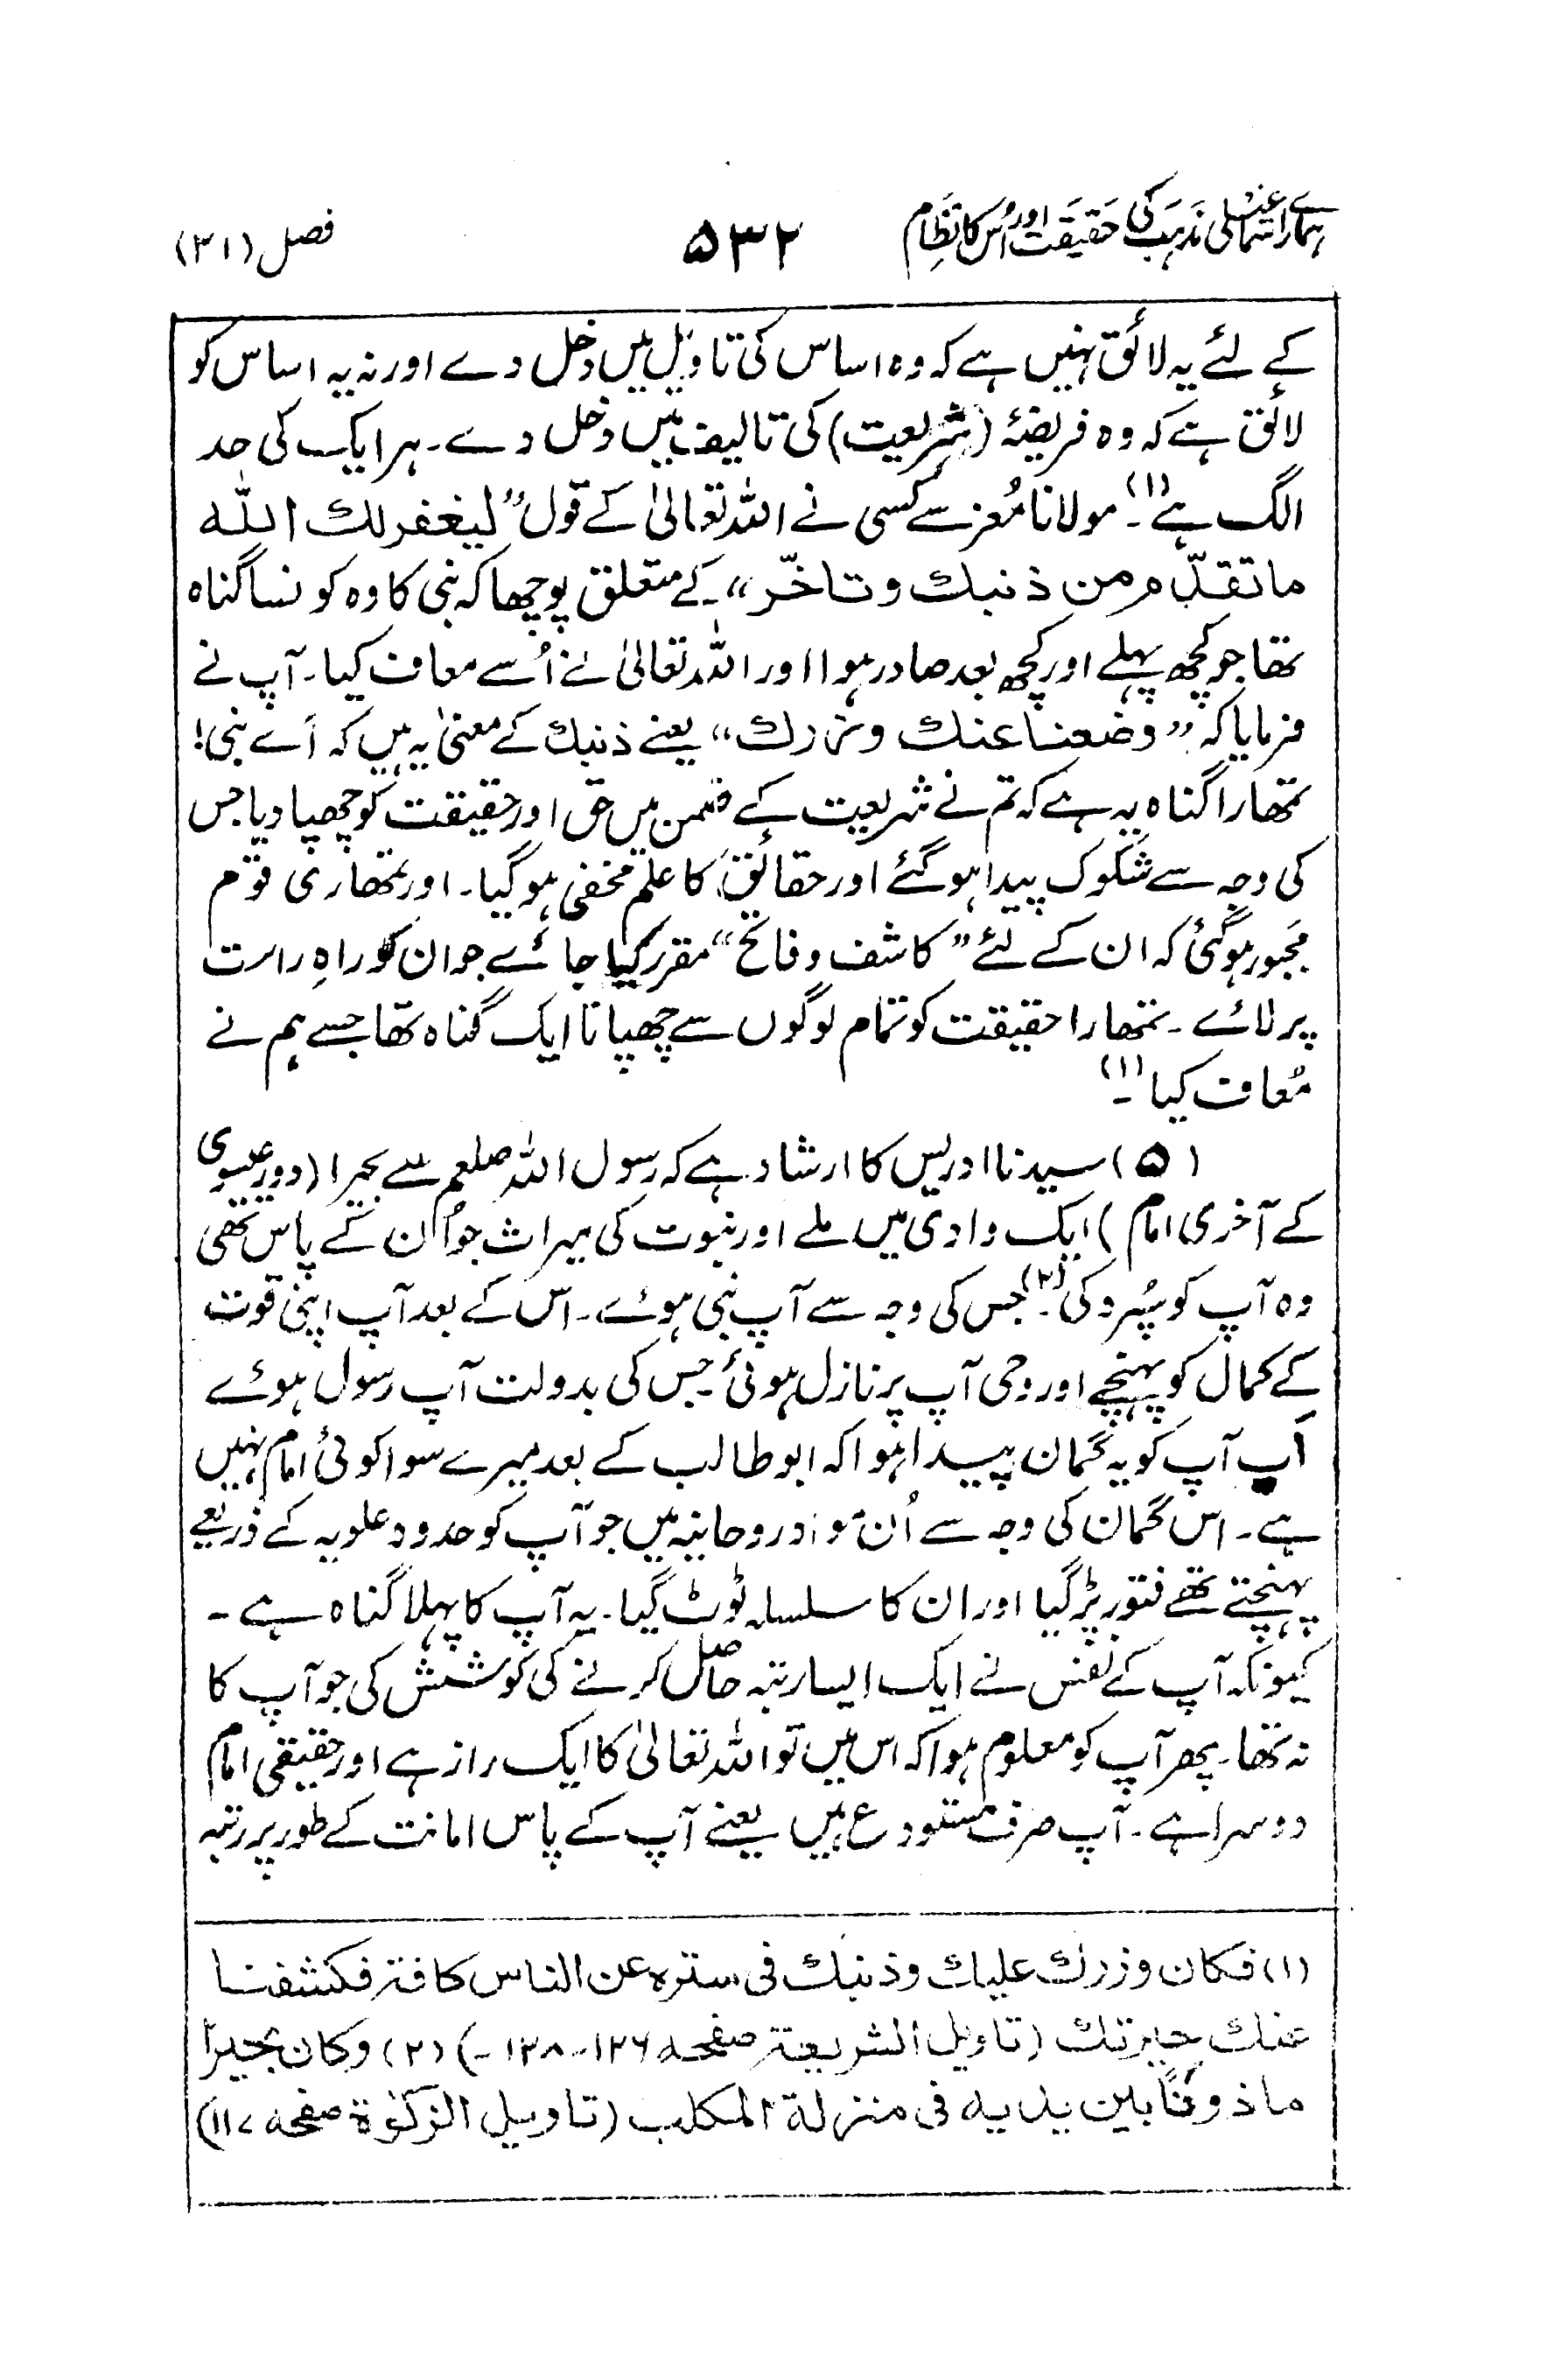 ہمارے اسمٰعیلی مذہب کی حقیقت اور اُس کا نظام
۵۳۲
فصل (۳۱)
کے لئے یہ لائق نہیں ہے کہ وہ اساس کی تاویل میں دخل دے اور نہ یہ اساس کو
لائق ہے کہ وہ فریضۂ (شریعت) کی تالیف میں دخل دے۔ ہر ایک کی حد
الگ ہے (۱)۔ مولانا مُعز سے کسی نے اللہ تعالیٰ کے قول ”لیغفر لك اللہ
ما تقدّم من ذنبك وتاخّر“۔ کے متعلق پوچھا کہ نبی کا وہ کونسا گناہ
تھا جو کچھ پہلے اور کچھ بعد صادر ہوا اور اللہ تعالیٰ نے اُسے معاف کیا۔ آپ نے
فرمایا کہ ”وضعنا عنك وزرك“ یعنے ذنبك کے معنیٰ یہ ہیں کہ اَے نبی!
تمھارا گناہ یہ ہے کہ تم نے شریعت کے ضمن میں حق اور حقیقت کو چھپا دیا جس
کی وجہ سے شکوک پیدا ہو گئے اور حقائق کا علم مخفی ہو گیا۔ اور تمھاری قوم
مجبور ہو گئی کہ ان کے لئے ”کاشف و فاتح“ مقرر کیا جائے جو ان کو راہِ راست
پر لائے۔ تمھارا حقیقت کو تمام لوگوں سے چھپانا ایک گناہ تھا جسے ہم نے
مُعاف کیا (۱)۔
(۵) سیدنا ادریس کا ارشاد ہے کہ رسول اللہ صلعم سے بحیرا (دورِ عیسوی
کے آخری امام) ایک وادی میں ملے اور نبوت کی میراث جو اُن کے پاس تھی
وہ آپ کو سپُرد کی (۲)۔ جس کی وجہ سے آپ نبی ہوئے۔ اس کے بعد آپ اپنی قوت
کے کمال کو پہنچے اور وحی آپ پر نازل ہوئی۔ جس کی بدولت آپ رسول ہوئے
اَب آپ کو یہ گمان پیدا ہوا کہ ابو طالب کے بعد میرے سوا کوئی امام نہیں
ہے۔ اس گمان کی وجہ سے اُن موادِ روحانیہ میں جو آپ کو حدود علویہ کے ذریعے
پہنچتے تھے فتور پڑ گیا اور ان کا سلسلہ ٹوٹ گیا۔ یہ آپ کا پہلا گناہ ہے۔
کیونکہ آپ کے نفس نے ایک ایسا رتبہ حاصل کرنے کی کوشش کی جو آپ کا
نہ تھا۔ پھر آپ کو معلوم ہوا کہ اس میں تو اللہ تعالیٰ کا ایک راز ہے اور حقیقی امام
دوسرا ہے۔ آپ صرف مستودع ہیں یعنے آپ کے پاس امانت کے طور پر رتبہ
(۱) فکان وزرك علیك وذنبك فی سترہ عن الناس کافۃ فکشفنا
عنك حیرتك (تاویل الشریعۃ صفحہ ۱۲۶-۱۳۸-) (۲) وکان بحیرا
ماذونًا بین یدیہ فی منزلۃ المکلب (تاویل الزکوٰۃ صفحہ ۱۱۷)